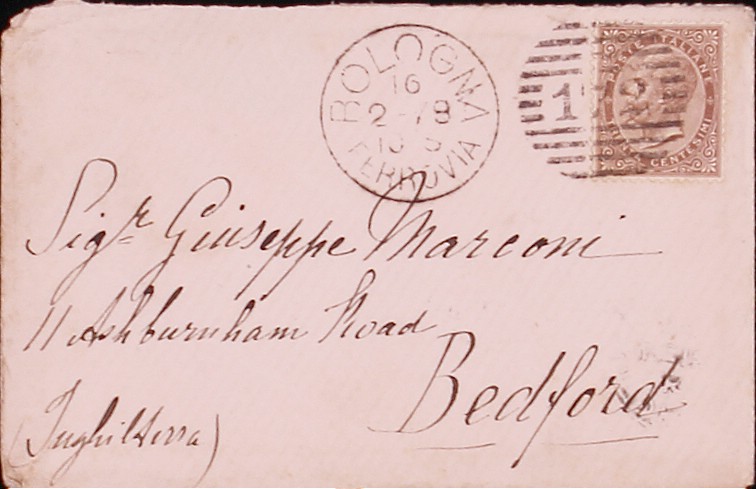 BOLOGNA
16
2-78
10 S
FERROVIA
POSTE ITALIANE
CENTESIMI
Sigr Giuseppe Marconi
11 Ashburnham Road
Bedford
(Inghilterra)